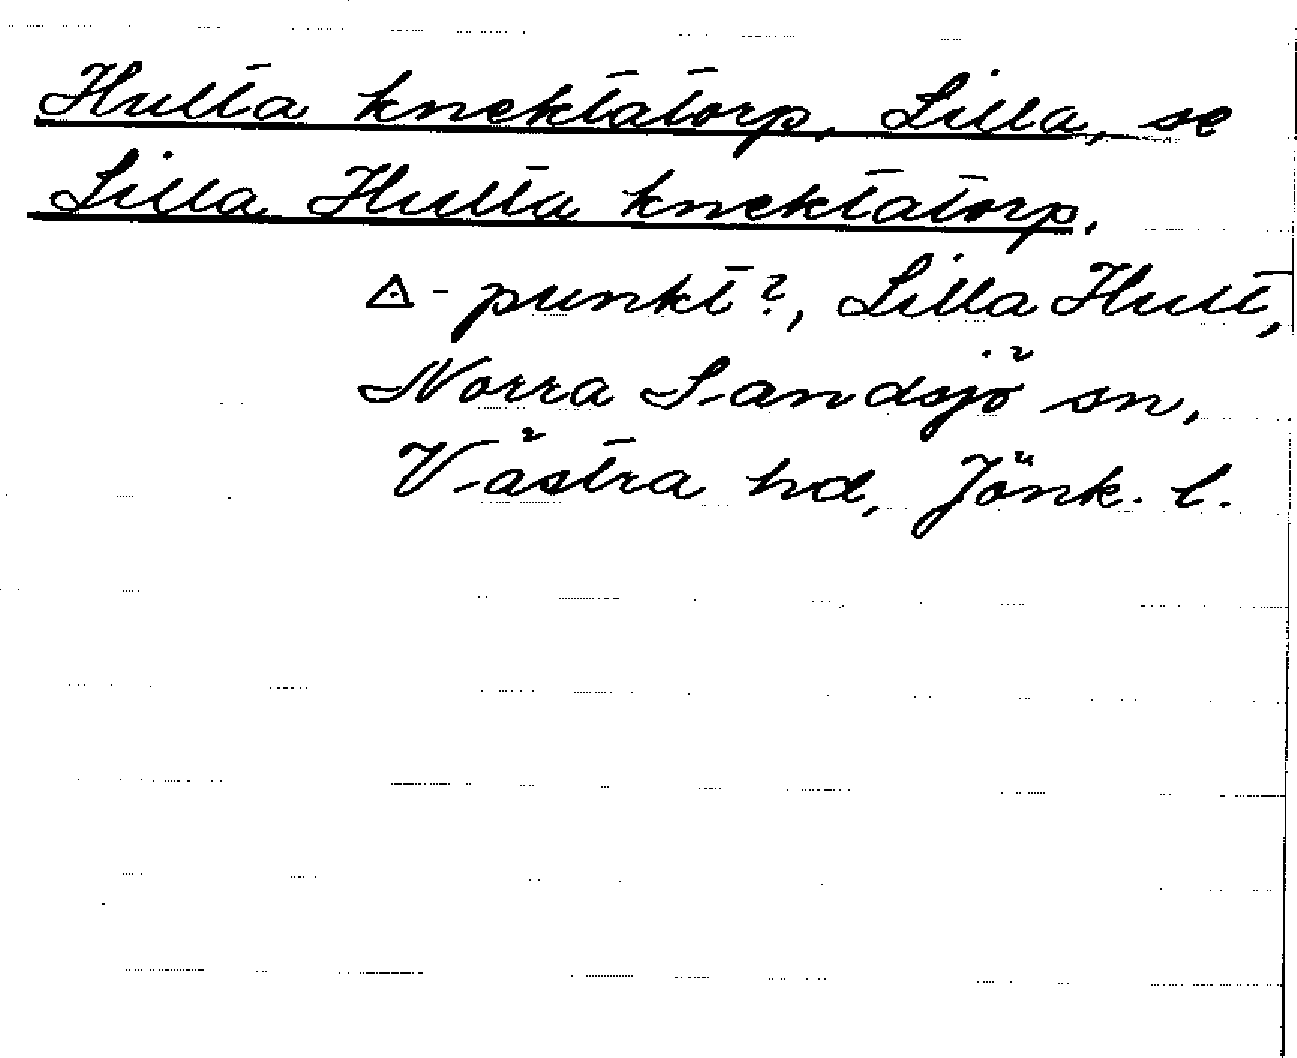 Hulta knektatorp, Lilla, se
Lilla Hulta knektatorp.
△ - punkt?, Lilla Hult,
Norra Sandsjö sn,
Västra hd, Jönk. l.